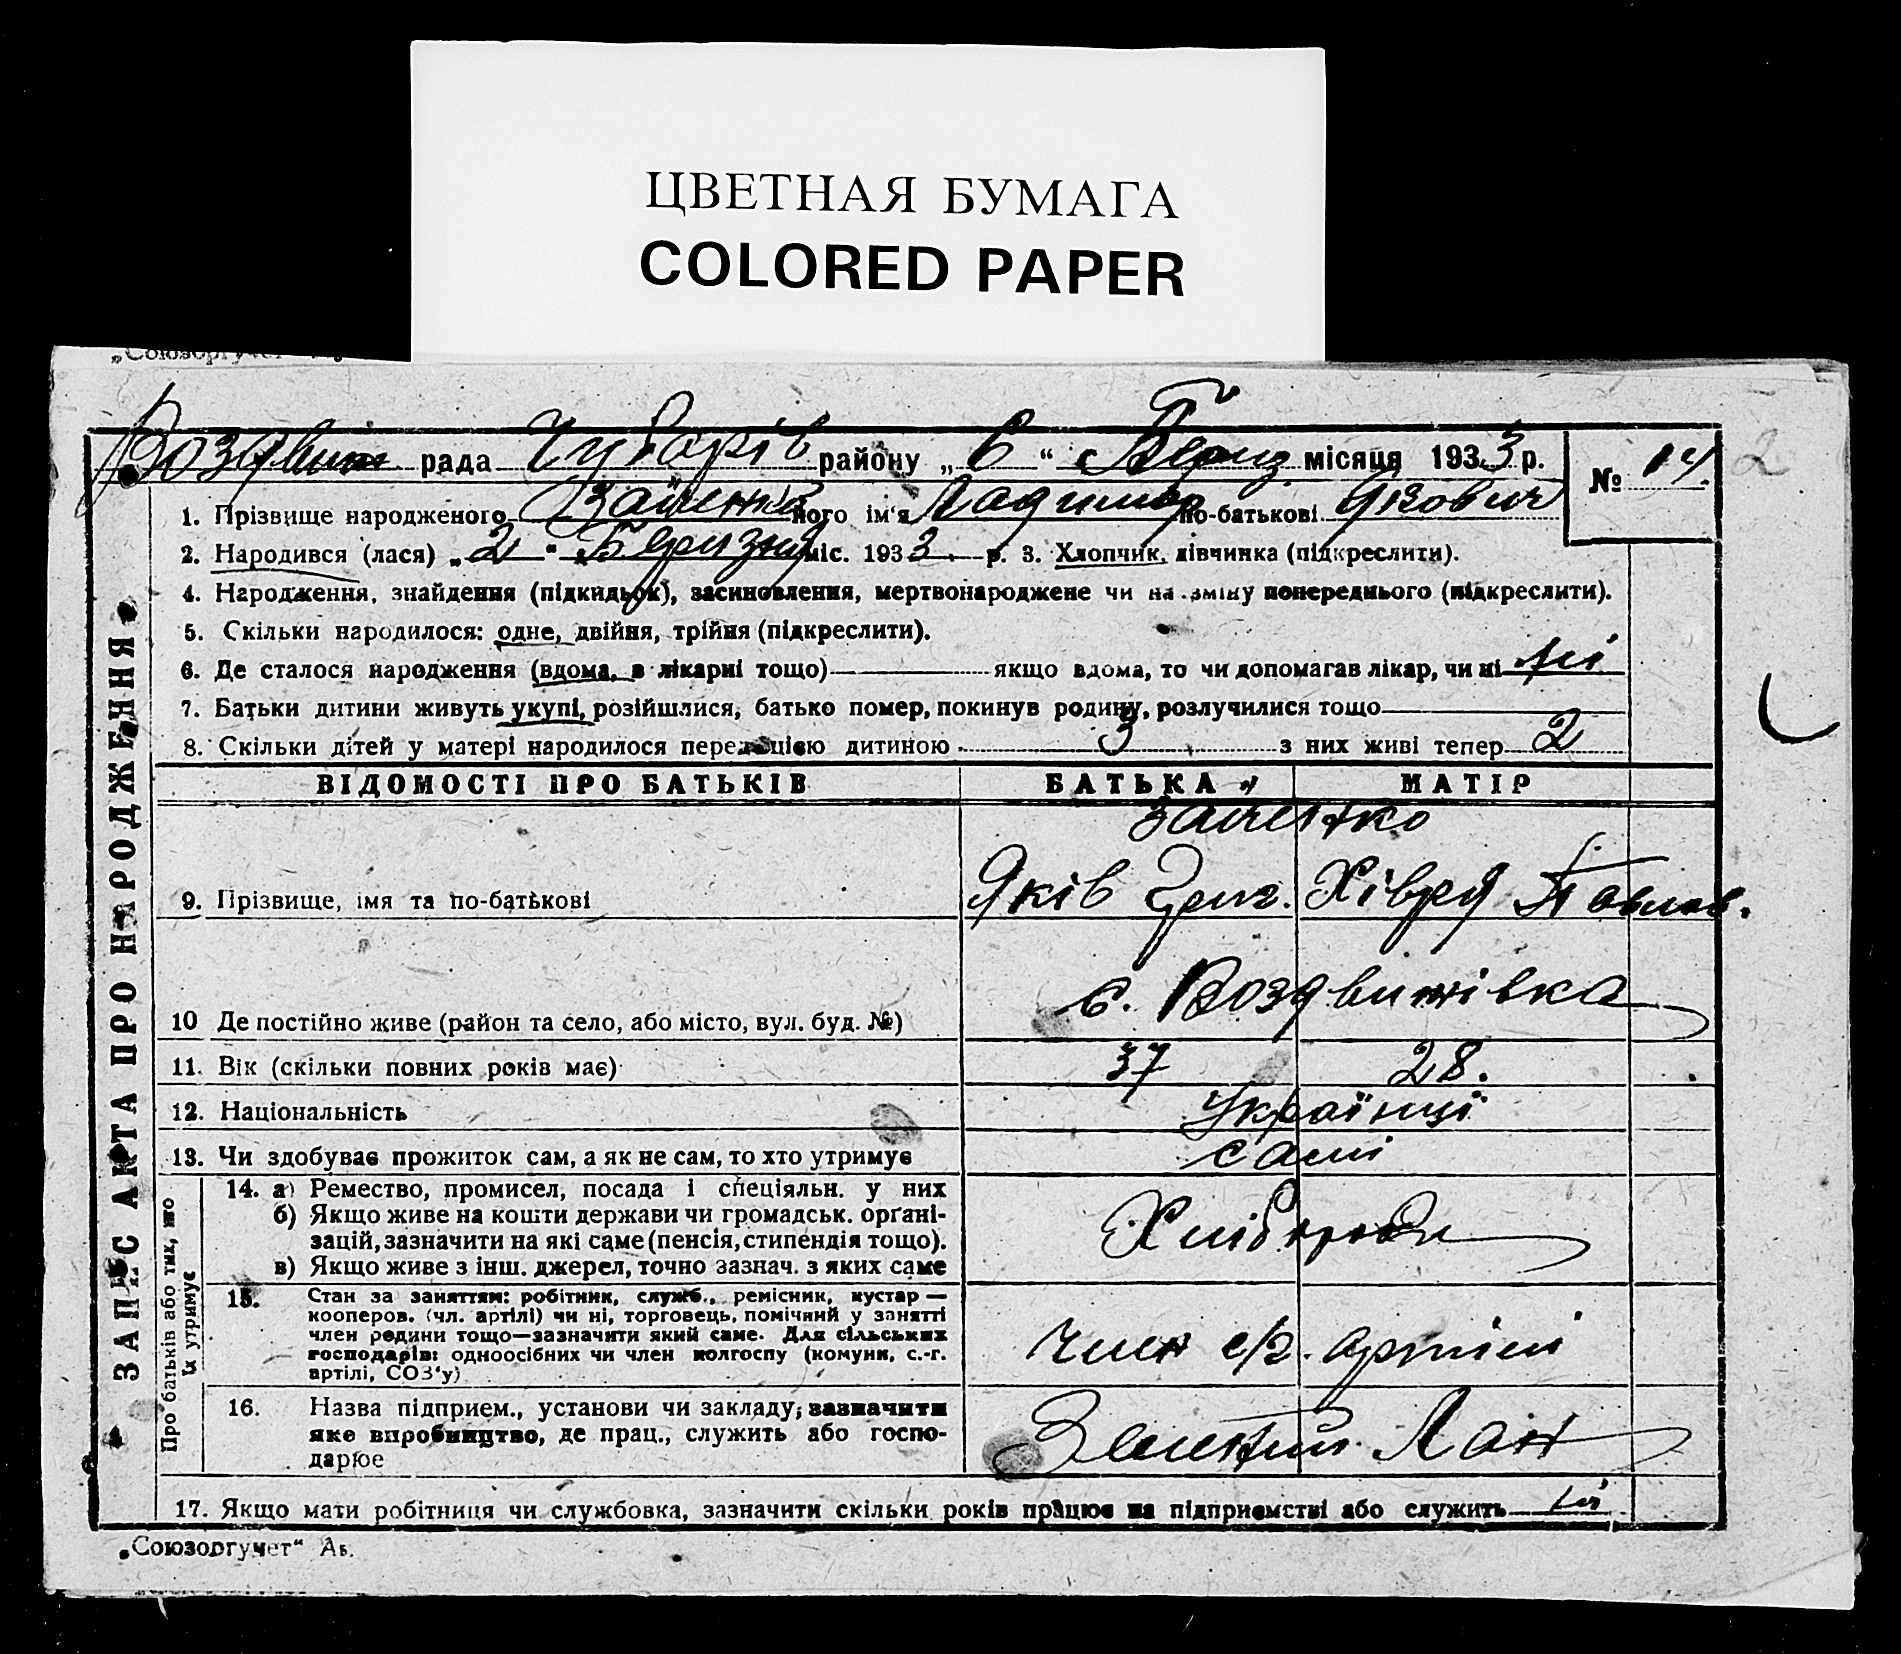 ЦВЕТНАЯ БУМАГА
COLORED PAPER
„Союзоргучет“
Воздвиж рада Чубарів району „6“ Берез місяця 1933 р.
№ 14
2
1. Прізвище народженого Заиченко його ім'я Ладимир по-батькові Якович
2. Народився (лася) „2“ Березня міс. 1933 р. 3. Хлопчик, дівчинка (підкреслити).
4. Народження, знайдення (підкидьок), засиновлення, мертвонароджене чи на зміну попереднього (підкреслити).
5. Скільки народилося: одне, двійня, трійня (підкреслити).
6. Де сталося народження (вдома, в лікарні тощо) якщо вдома, то чи допомагав лікар, чи ні ні
7. Батьки дитини живуть укупі, розійшлися, батько помер, покинув родину, розлучилися тощо
8. Скільки дітей у матері народилося перед цією дитиною 3 з них живі тепер 2
ЗАПИС АКТА ПРО НАРОДЖЕННЯ
ВІДОМОСТІ ПРО БАТЬКІВ БАТЬКА МАТІР
Заиченко
9. Прізвище, імя та по-батькові Яків Григ. Хівря Павлов.
10 Де постійно живе (район та село, або місто, вул. буд. №) с. Воздвижівка
11. Вік (скільки повних років має) 37 28.
12. Національність Українці
13. Чи здобуває прожиток сам, а як не сам, то хто утримує сами
Про батьків або тих, що їх утримує
14. а) Ремество, промисел, посада і спеціяльн. у них
б) Якщо живе на кошти держави чи громадськ. орґані-
зацій, зазначити на які саме (пенсія, стипендія тощо).
в) Якщо живе з інш. джерел, точно зазнач. з яких саме
Хлібороби
15. Стан за заняттям: робітник, служб., ремісник, кустар —
кооперов. (чл. артілі) чи ні, торговець, помічний у занятті
член родини тощо—зазначити який саме. Для сільських
господарів: одноосібних чи член колгоспу (комуни, с.-г.
артілі, СОЗ'у)
член с/г. артілі
16. Назва підприєм., установи чи закладу, зазначити
яке виробництво, де прац., служить або госпо-
дарює
Зелений Лан
17. Якщо мати робітниця чи службовка, зазначити скільки років працює на підприємстві або служить ні
„Союзоргучет“ Ав.